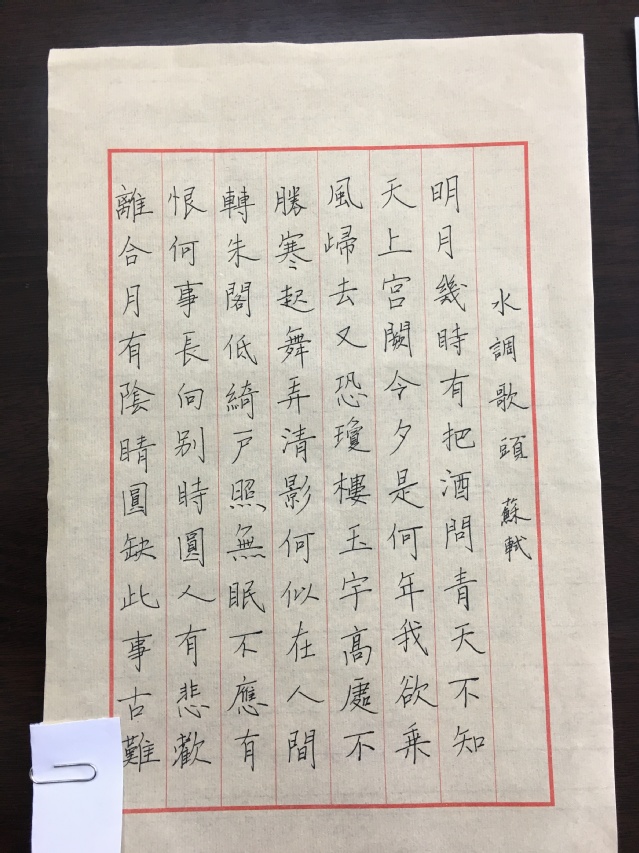 水調歌頭 蘇軾
明月幾時有把酒問青天不知
天上宮闕今夕是何年我欲乘
風歸去又恐瓊樓玉宇高處不
勝寒起舞弄清影何似在人間
轉朱閣低綺戶照無眠不應有
恨何事長向别時圓人有悲歡
離合月有陰晴圓缺此事古難